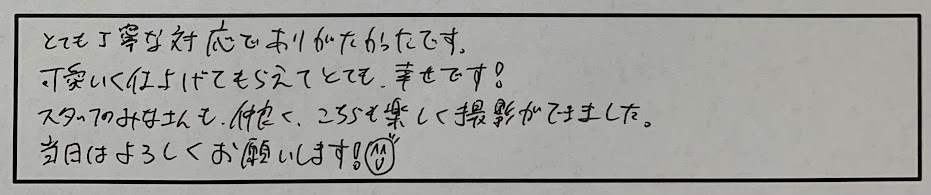 とても丁寧な対応でありがたかったです。
可愛いく仕上げてもらえてとても、幸せです!
スタッフのみなさんも、仲良く、こちらも楽しく撮影ができました。
当日はよろしくお願いします!